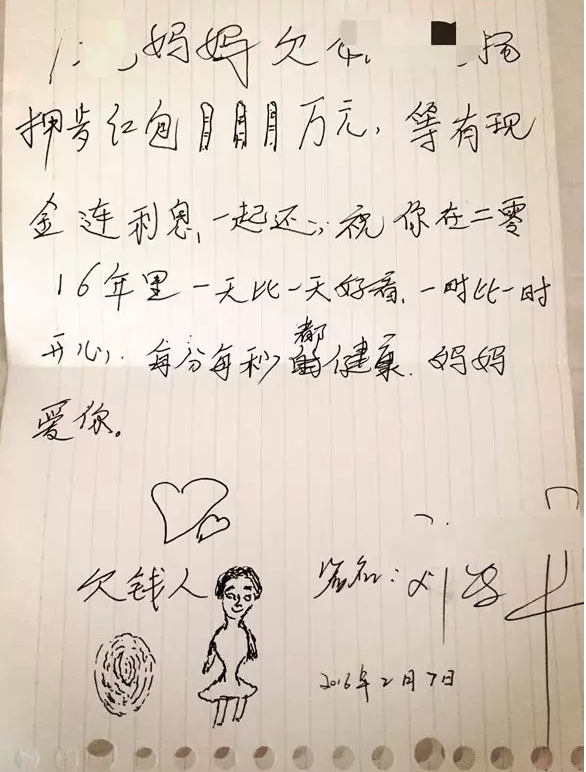 妈妈欠
押岁红包万元,等有现
金连利息,一起还,祝你在二零
16年里一天比一天好看.一时比一时
开心.每分每秒都健康.妈妈
爱你。
欠钱人
签名:刘
2016年2月7日